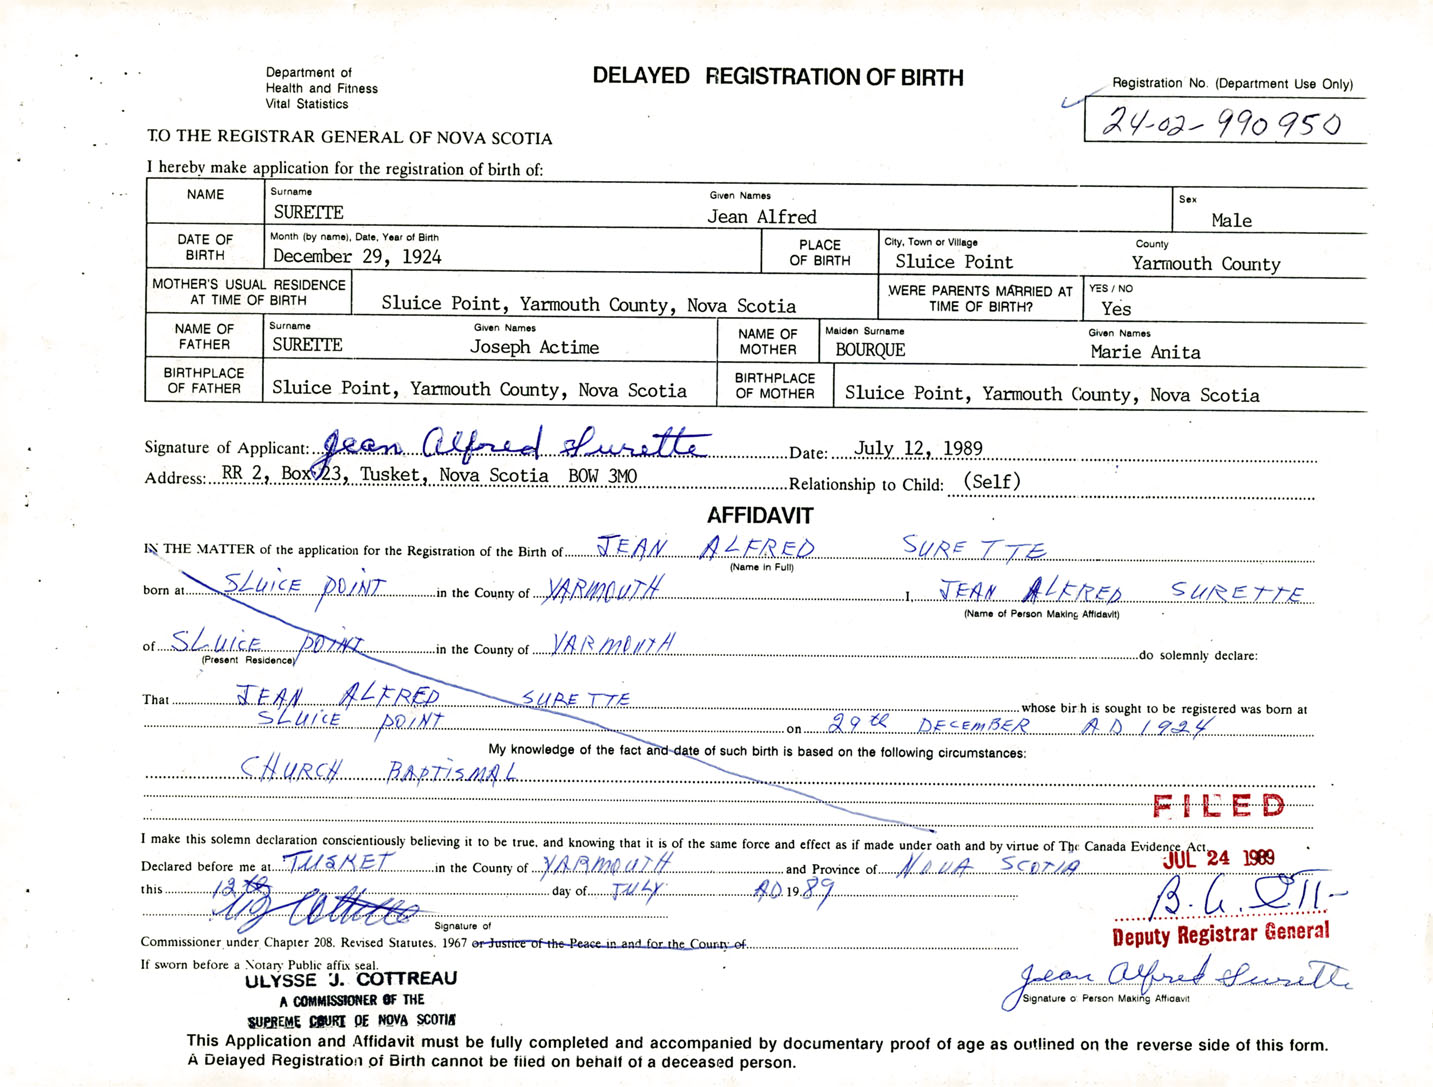 Department of
Health and Fitness
Vital Statistics
DELAYED REGISTRATION OF BIRTH
Registration No. (Department Use Only)
24-02-990950
TO THE REGISTRAR GENERAL OF NOVA SCOTIA
I hereby make application for the registration of birth of:
NAME Surname SURETTE Given Names Jean Alfred Sex Male
DATE OF BIRTH Month (by name), Date, Year of Birth December 29, 1924 PLACE OF BIRTH City, Town or Village Sluice Point County Yarmouth County
MOTHER'S USUAL RESIDENCE AT TIME OF BIRTH Sluice Point, Yarmouth County, Nova Scotia WERE PARENTS MARRIED AT TIME OF BIRTH? YES / NO Yes
NAME OF FATHER Surname SURETTE Given Names Joseph Actime NAME OF MOTHER Maiden Surname BOURQUE Given Names Marie Anita
BIRTHPLACE OF FATHER Sluice Point, Yarmouth County, Nova Scotia BIRTHPLACE OF MOTHER Sluice Point, Yarmouth County, Nova Scotia
Signature of Applicant: Jean Alfred Surette Date: July 12, 1989
Address: RR 2, Box 23, Tusket, Nova Scotia BOW 3MO Relationship to Child: (Self)
AFFIDAVIT
IN THE MATTER of the application for the Registration of the Birth of JEAN ALFRED SURETTE
(Name in Full)
born at SLUICE POINT in the County of YARMOUTH I, JEAN ALFRED SURETTE
(Name of Person Making Affidavit)
of SLUICE POINT in the County of YARMOUTH do solemnly declare:
(Present Residence)
That JEAN ALFRED SURETTE whose bir h is sought to be registered was born at
SLUICE POINT on 29th DECEMBER AD 1924
My knowledge of the fact and date of such birth is based on the following circumstances:
CHURCH BAPTISMAL
FILED
I make this solemn declaration conscientiously believing it to be true, and knowing that it is of the same force and effect as if made under oath and by virtue of The Canada Evidence Act.
JUL 24 1989
Declared before me at TUSKET in the County of YARMOUTH and Province of NOVA SCOTIA
this 12th day of JULY AD 1989
Signature of
Deputy Registrar General
Commissioner under Chapter 208, Revised Statutes, 1967 or Justice of the Peace in and for the County of
If sworn before a Notary Public affix seal.
ULYSSE J. COTTREAU
A COMMISSIONER OF THE
SUPREME COURT OF NOVA SCOTIA
Jean Alfred Surette
Signature o Person Making Affidavit
This Application and Affidavit must be fully completed and accompanied by documentary proof of age as outlined on the reverse side of this form.
A Delayed Registration of Birth cannot be filed on behalf of a deceased person.